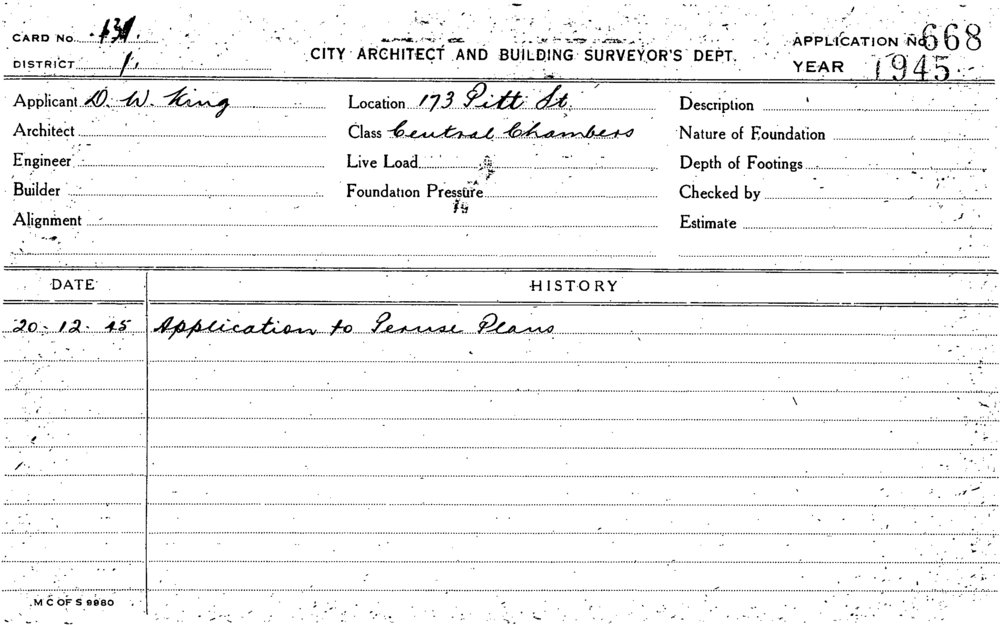 CARD No. 131. APPLICATION No 668
DISTRICT 1. CITY ARCHITECT AND BUILDING SURVEYOR'S DEPT. YEAR 1945
Applicant D. W. King Location 173 Pitt St. Description
Architect Class Central Chambers Nature of Foundation
Engineer Live Load Depth of Footings
Builder Foundation Pressure Checked by
Alignment Estimate
DATE HISTORY
20-12-45 Application to Peruse Plans
M C OF S 9980